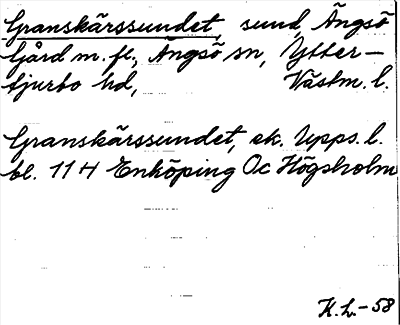 Granskärssundet, sund, Ängsö
Gård m. fl., Ängsö sn, Ytter-
tjurbo hd, Västm. l.
Granskärssundet, ek. Upps. l.
bl. 114 Enköping Oc Högsholm
K. L. - 58